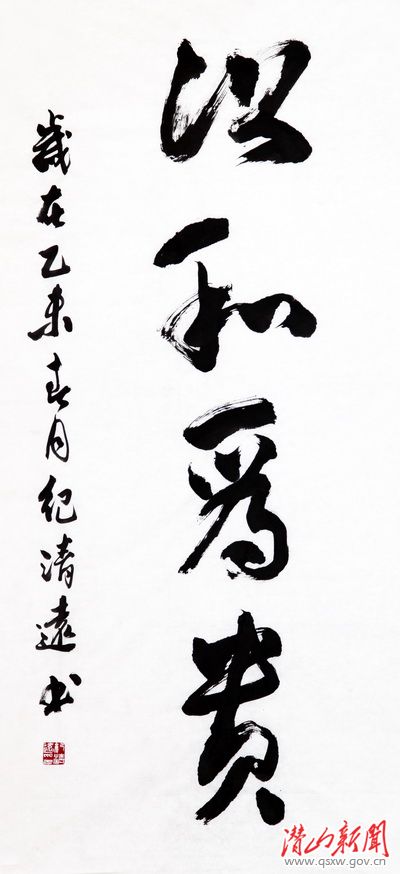 以和為貴
歲在乙未春月紀清遠书
潜山新聞
www.qsxw.gov.cn